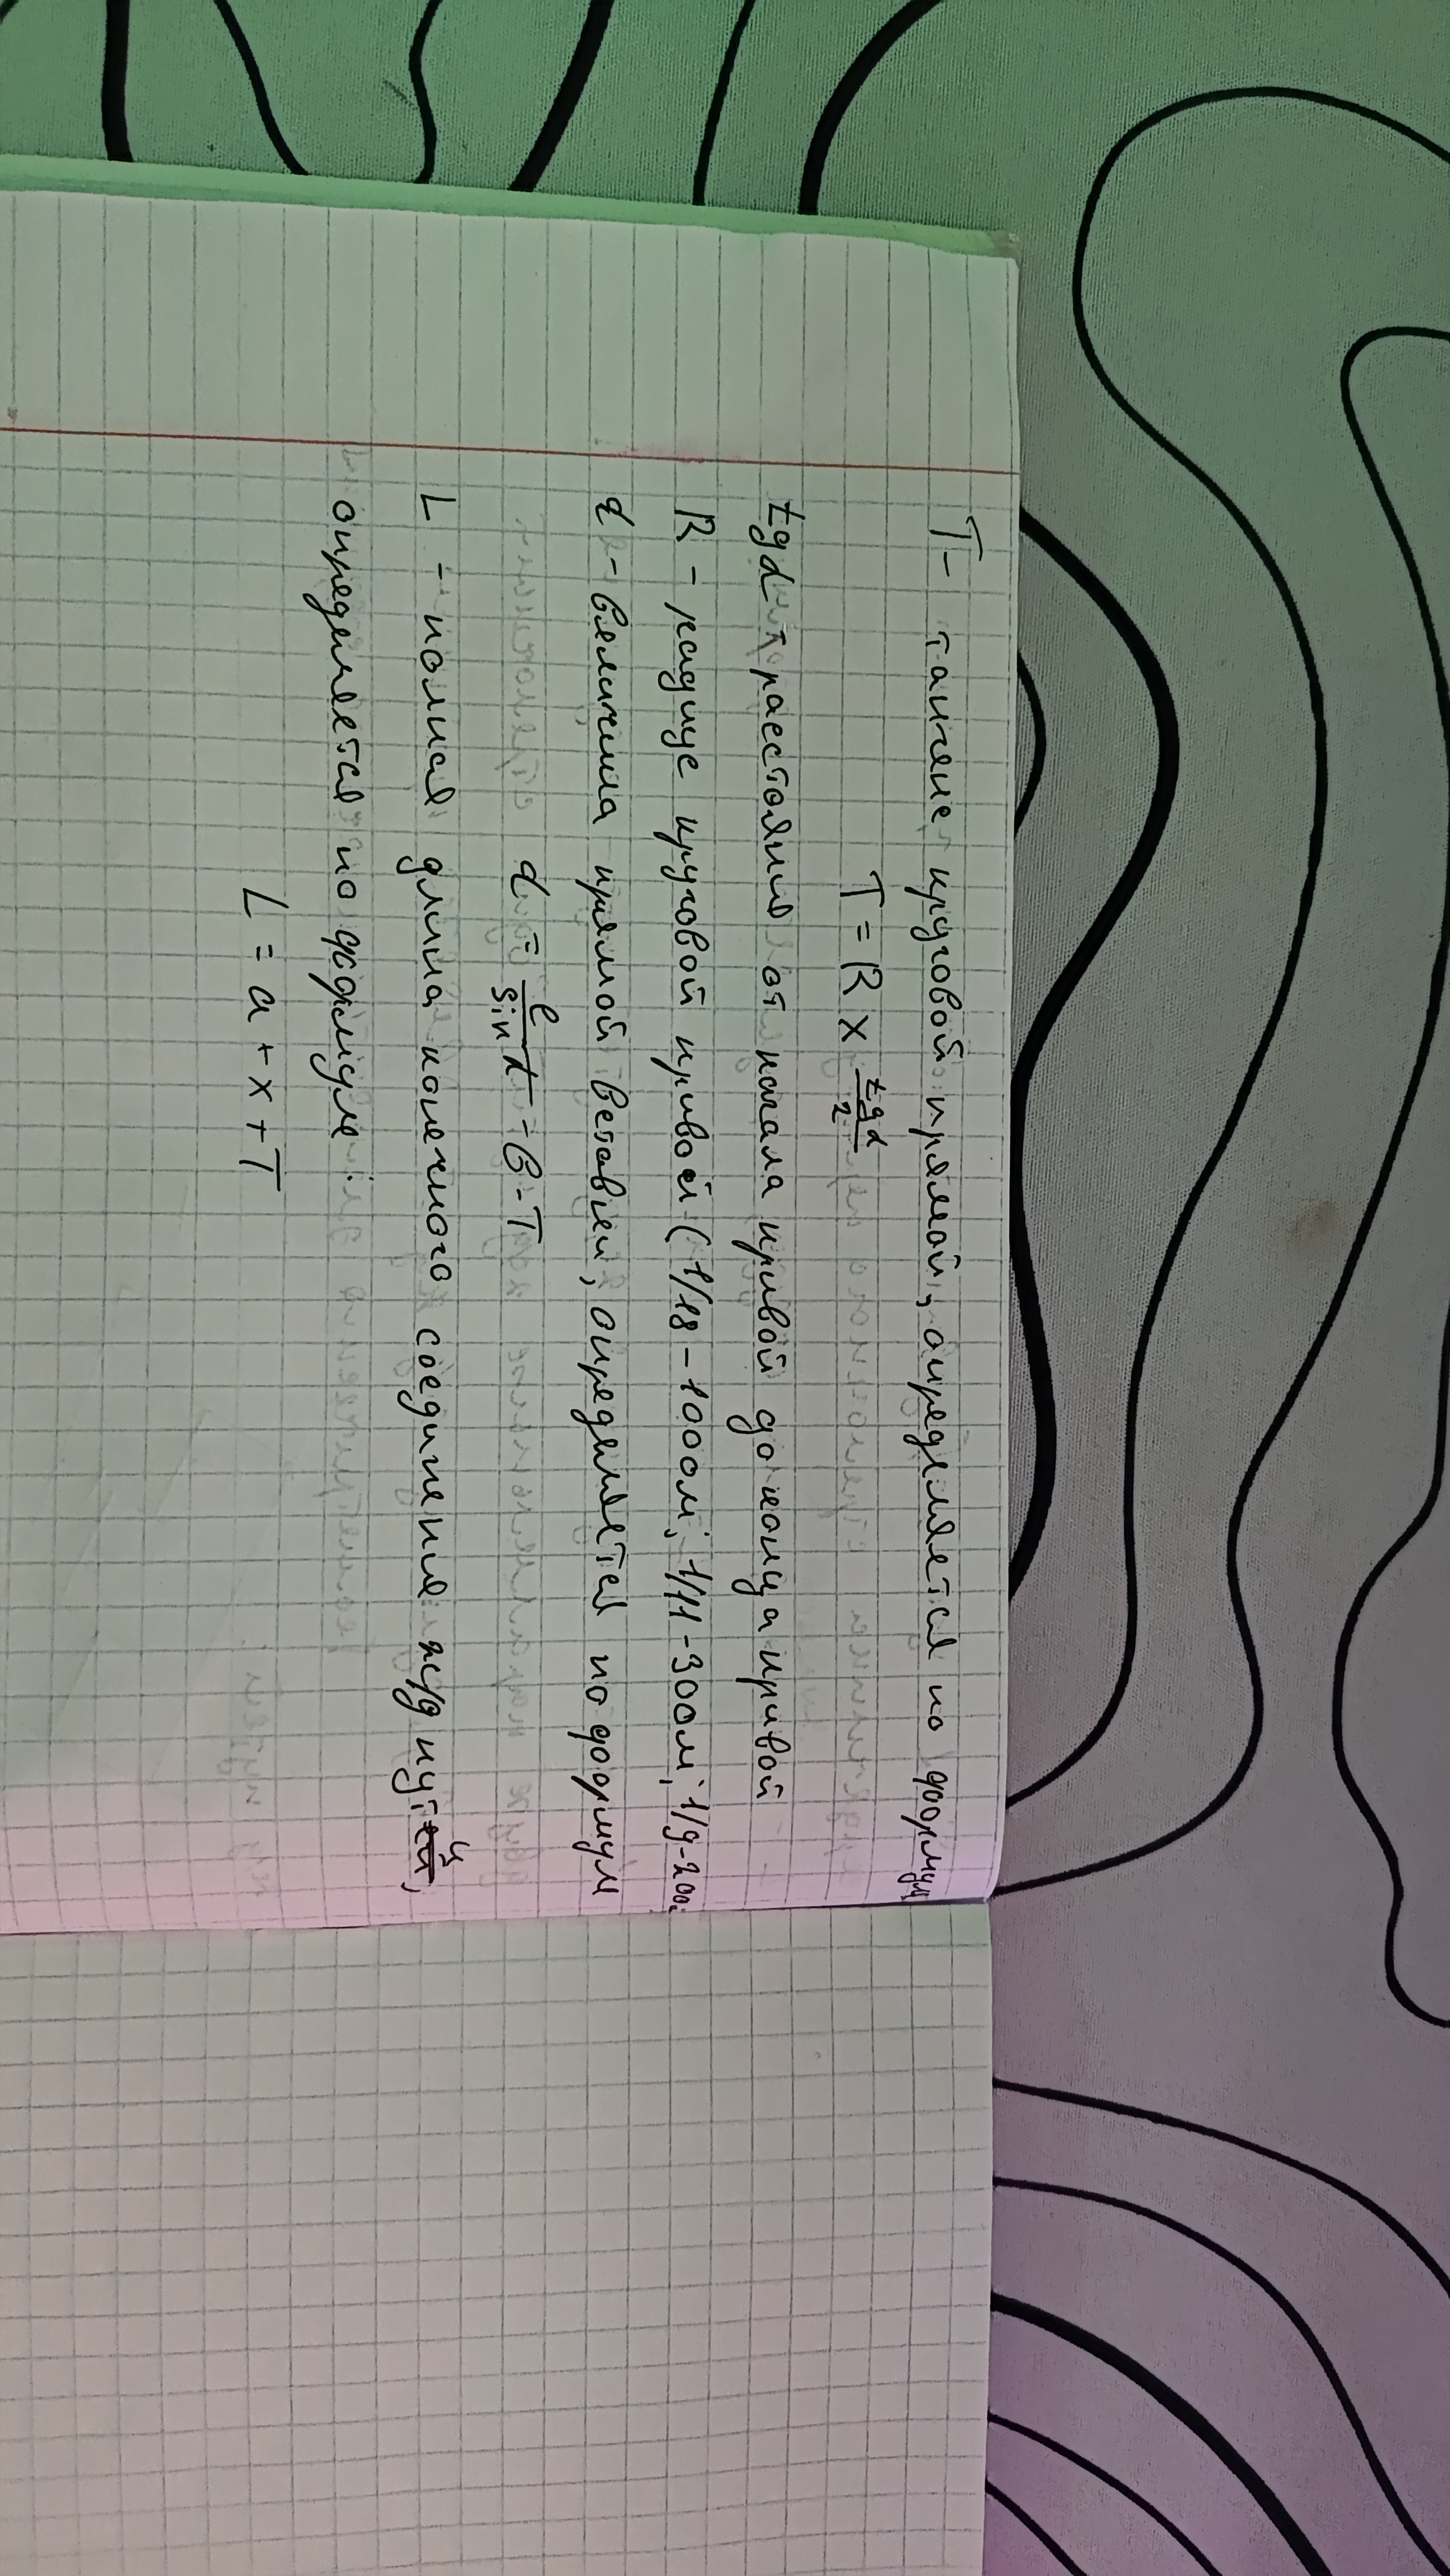 T - тангенс круговой прямой, определяется по формуле
T = R × tgα/2
tgα - расстояния от начала кривой до конца кривой
R - радиус круговой кривой (1/18 - 1000м; 1/11 - 300м; 1/9 - 200м
d - величина прямой вставки, определяется по формул
d = e/sin α - b - T
L - полная длина конечного соединения ж/д путй,
определяется по формуле
L = a + x + T